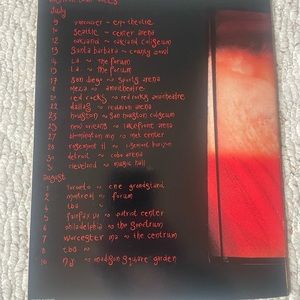 july
9 vancouver ~ expo theatre
10 seattle ~ center arena
12 oakland ~ oakland coliseum
13 santa barbara ~ county bowl
14 la ~ the forum
15 la ~ the forum
17 san diego ~ sports arena
18 mesa ~ amphitheatre
20 red rocks ~ red rocks amphitheatre
22 dallas ~ reunion arena
23 houston ~ sam houston coliseum
25 new orleans ~ lakefront arena
27 bloomington mn ~ met center
28 rosemont il ~ rosemont horizon
30 detroit ~ cobo arena
31 cleveland ~ music hall
august
1 toronto ~ cne grandstand
2 montreal ~ forum
4 tba ~
5 fairfax va ~ patriot center
6 philadelphia ~ the spectrum
7 worcester ma ~ the centrum
8 tba ~
10 ny ~ madison square garden